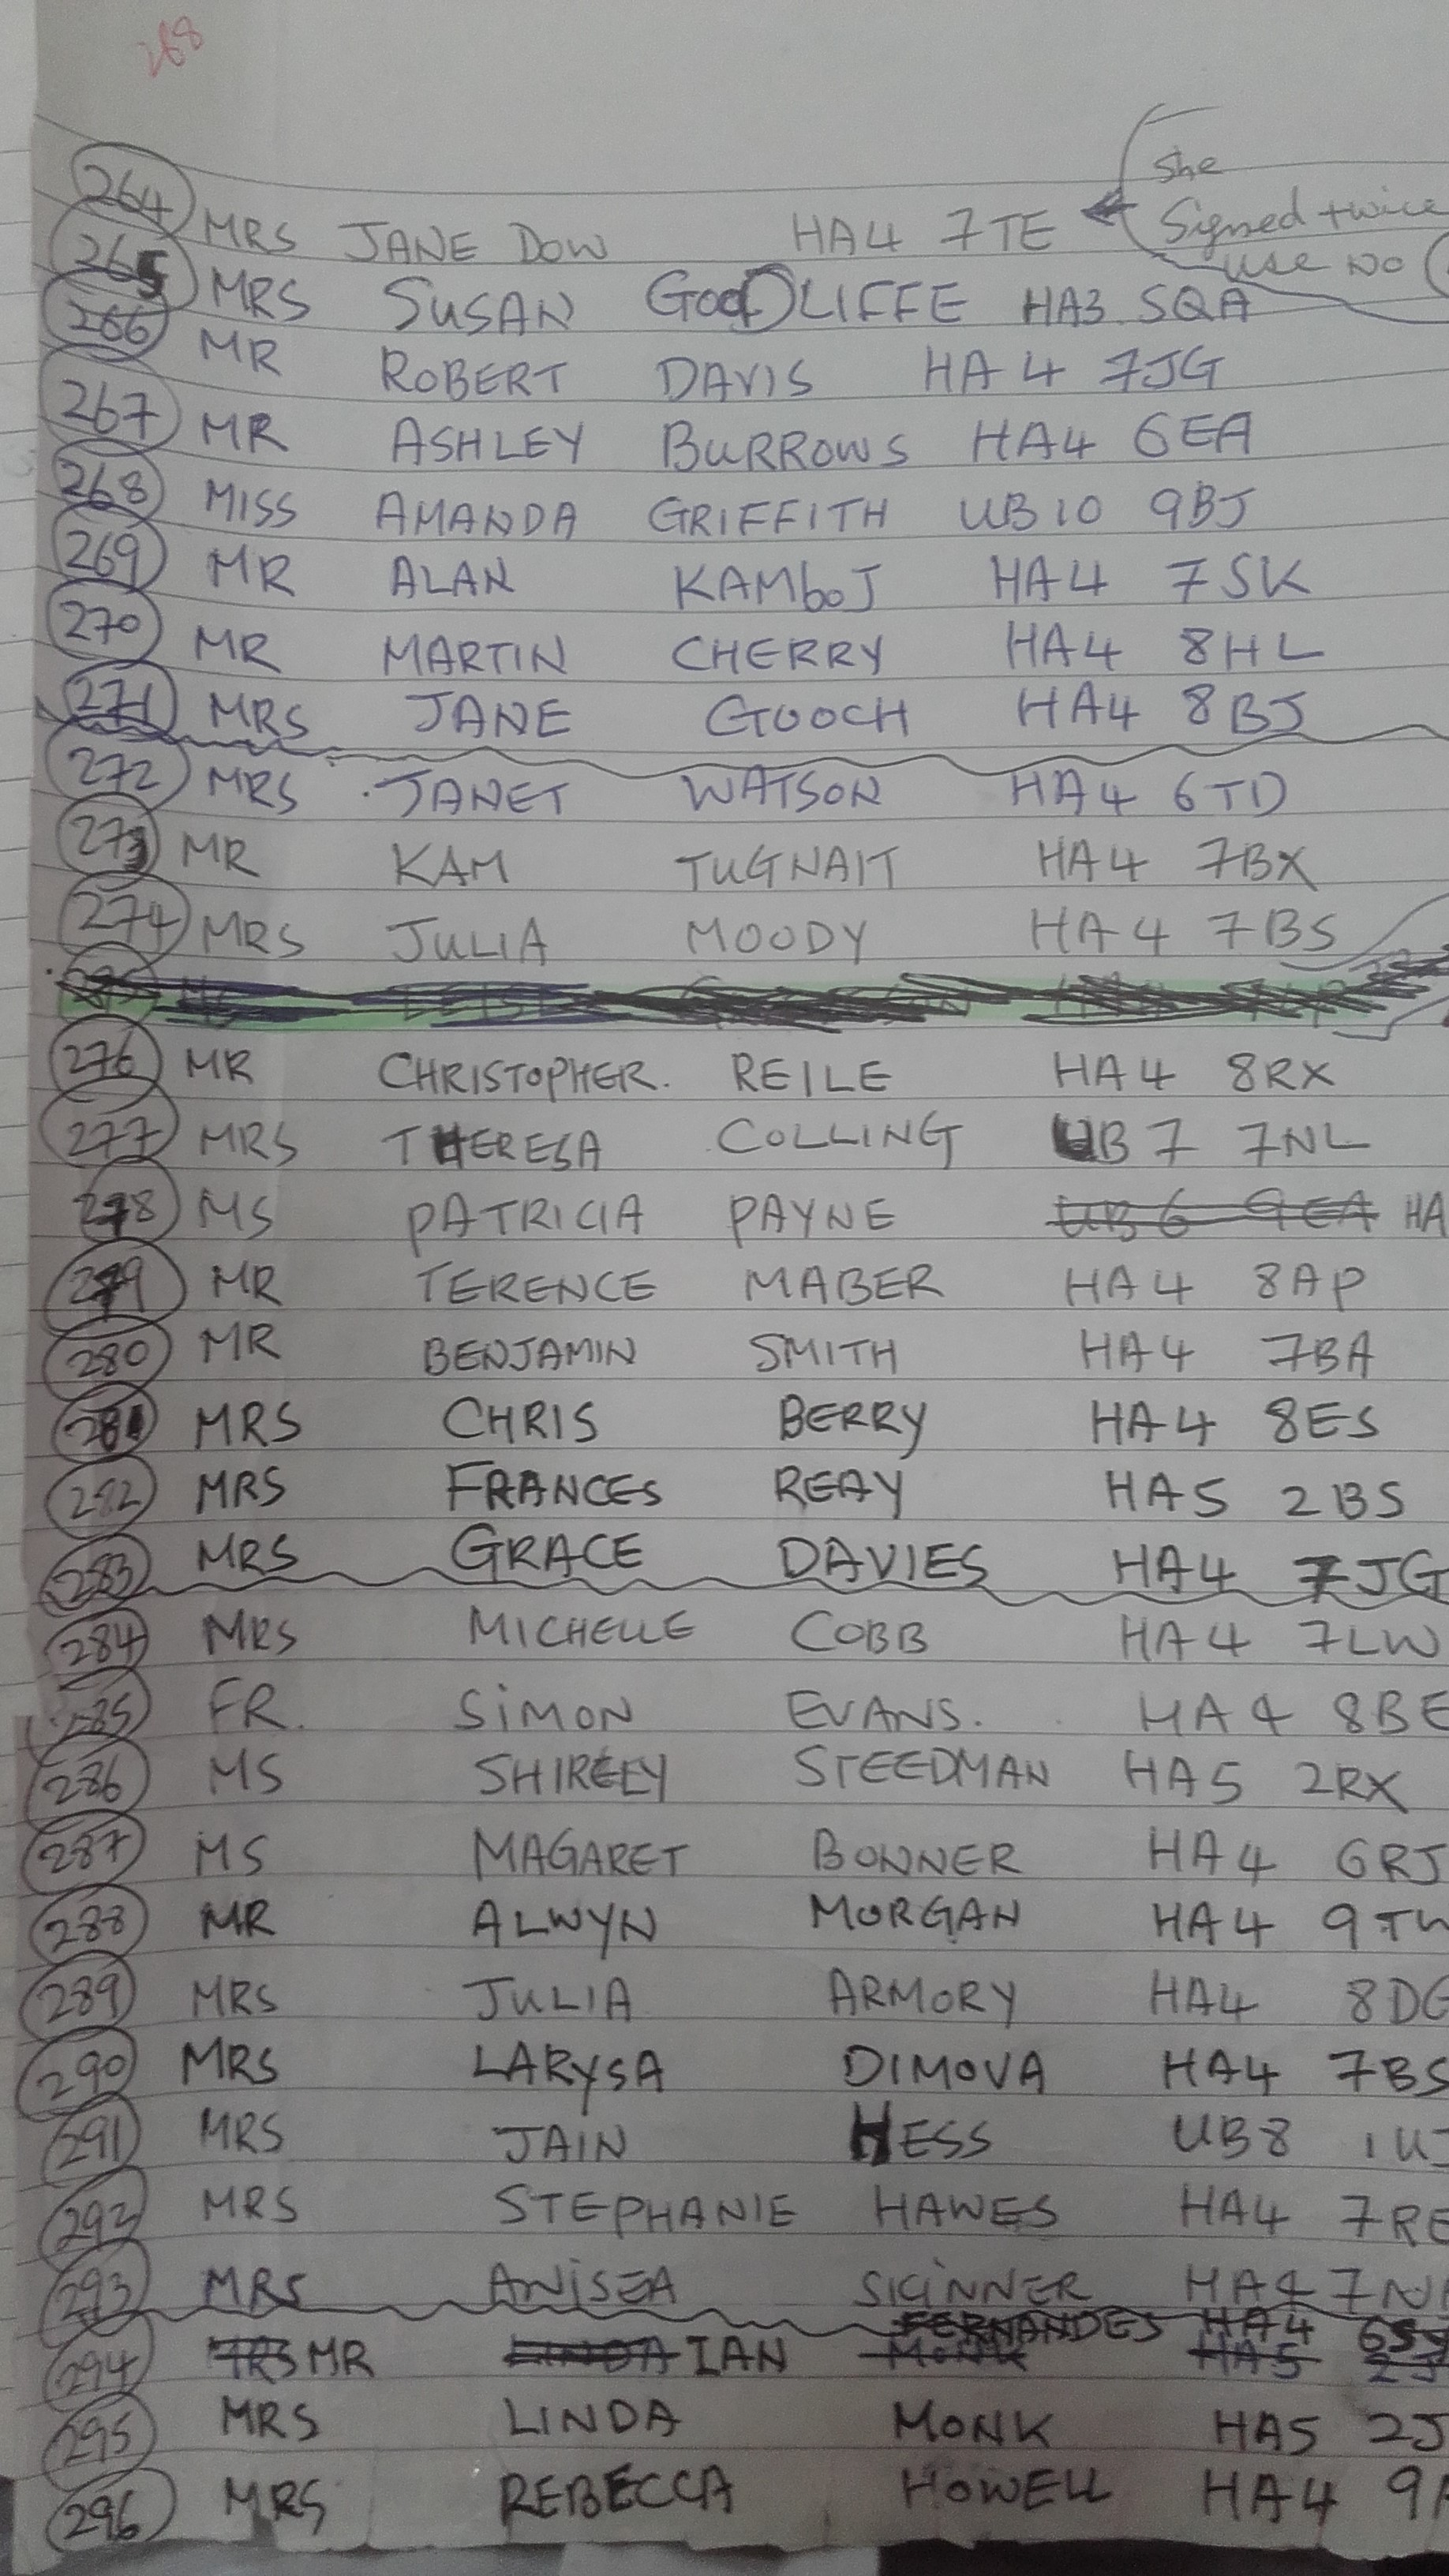 268
She
264 MRS JANE DOW HA4 7TE Signed twice
use NO
265 MRS SUSAN GOODLIFFE HA3 5QA
266 MR ROBERT DAVIS HA4 7JG
267 MR ASHLEY BURROWS HA4 6EA
268 MISS AMANDA GRIFFITH UB10 9BJ
269 MR ALAN KAMboJ HA4 7SK
270 MR MARTIN CHERRY HA4 8HL
271 MRS JANE GOOCH HA4 8BJ
272 MRS JANET WATSON HA4 6TD
273 MR KAM TUGNAIT HA4 7BX
274 MRS JULIA MOODY HA4 7BS
276 MR CHRISTOPHER. REILE HA4 8RX
277 MRS THERESA COLLING UB7 7NL
278 MS PATRICIA PAYNE UB6 9EA HA
279 MR TERENCE MABER HA4 8AP
280 MR BENJAMIN SMITH HA4 7BA
281 MRS CHRIS BERRY HA4 8ES
282 MRS FRANCES REAY HA5 2BS
283 MRS GRACE DAVIES HA4 7JG
284 MRS MICHELLE COBB HA4 7LW
285 FR. SiMON EVANS. HA4 8BE
286 MS SHIRELY STEEDMAN HA5 2RX
287 MS MAGARET BONNER HA4 6RJ
288 MR ALWYN MORGAN HA4 9TW
289 MRS JULIA ARMORY HA4 8DG
290 MRS LARYSA DIMOVA HA4 7BS
291 MRS JAIN HESS UB8 1U
292 MRS STEPHANIE HAWES HA4 7RE
293 MRS ANiSEA SKiNNER HA4 7N
FERNANDES HA4
294 MRS MR LINDA IAN MONK HA5 2J
295 MRS LINDA MONK HA5 2J
296 MRS REBECCA HOWELL HA4 9